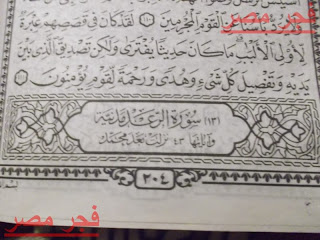 فجر مصر
بأسنا عن القوم المجرمين ١١٠ لقد كان في قصصهم عبرة
لأولي الألباب ما كان حديثا يفترى ولكن تصديق الذي بين
يديه وتفصيل كل شيء وهدى ورحمة لقوم يؤمنون ١١١
(١٣) سورة الرعد مدنية
وآياتها ٤٣ نزلت بعد محمد
٢٠٤
فجر مصر